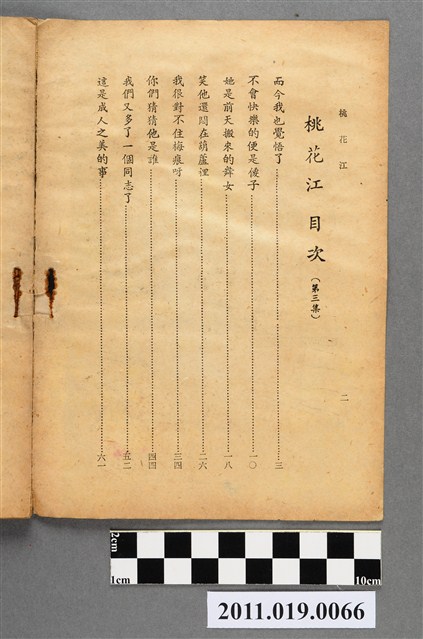 桃花江
二
桃花江目次(第三集)
而今我也覺悟了……三
不會快樂的便是傻子……一〇
她是前天搬來的舞女……一八
笑他還悶在葫蘆裡……二六
我很對不住梅痕呀……三四
你們猜猜他是誰……四四
我們又多了一個同志了……五二
這是成人之美的事……六一
2cm
1cm
10cm
2011.019.0066